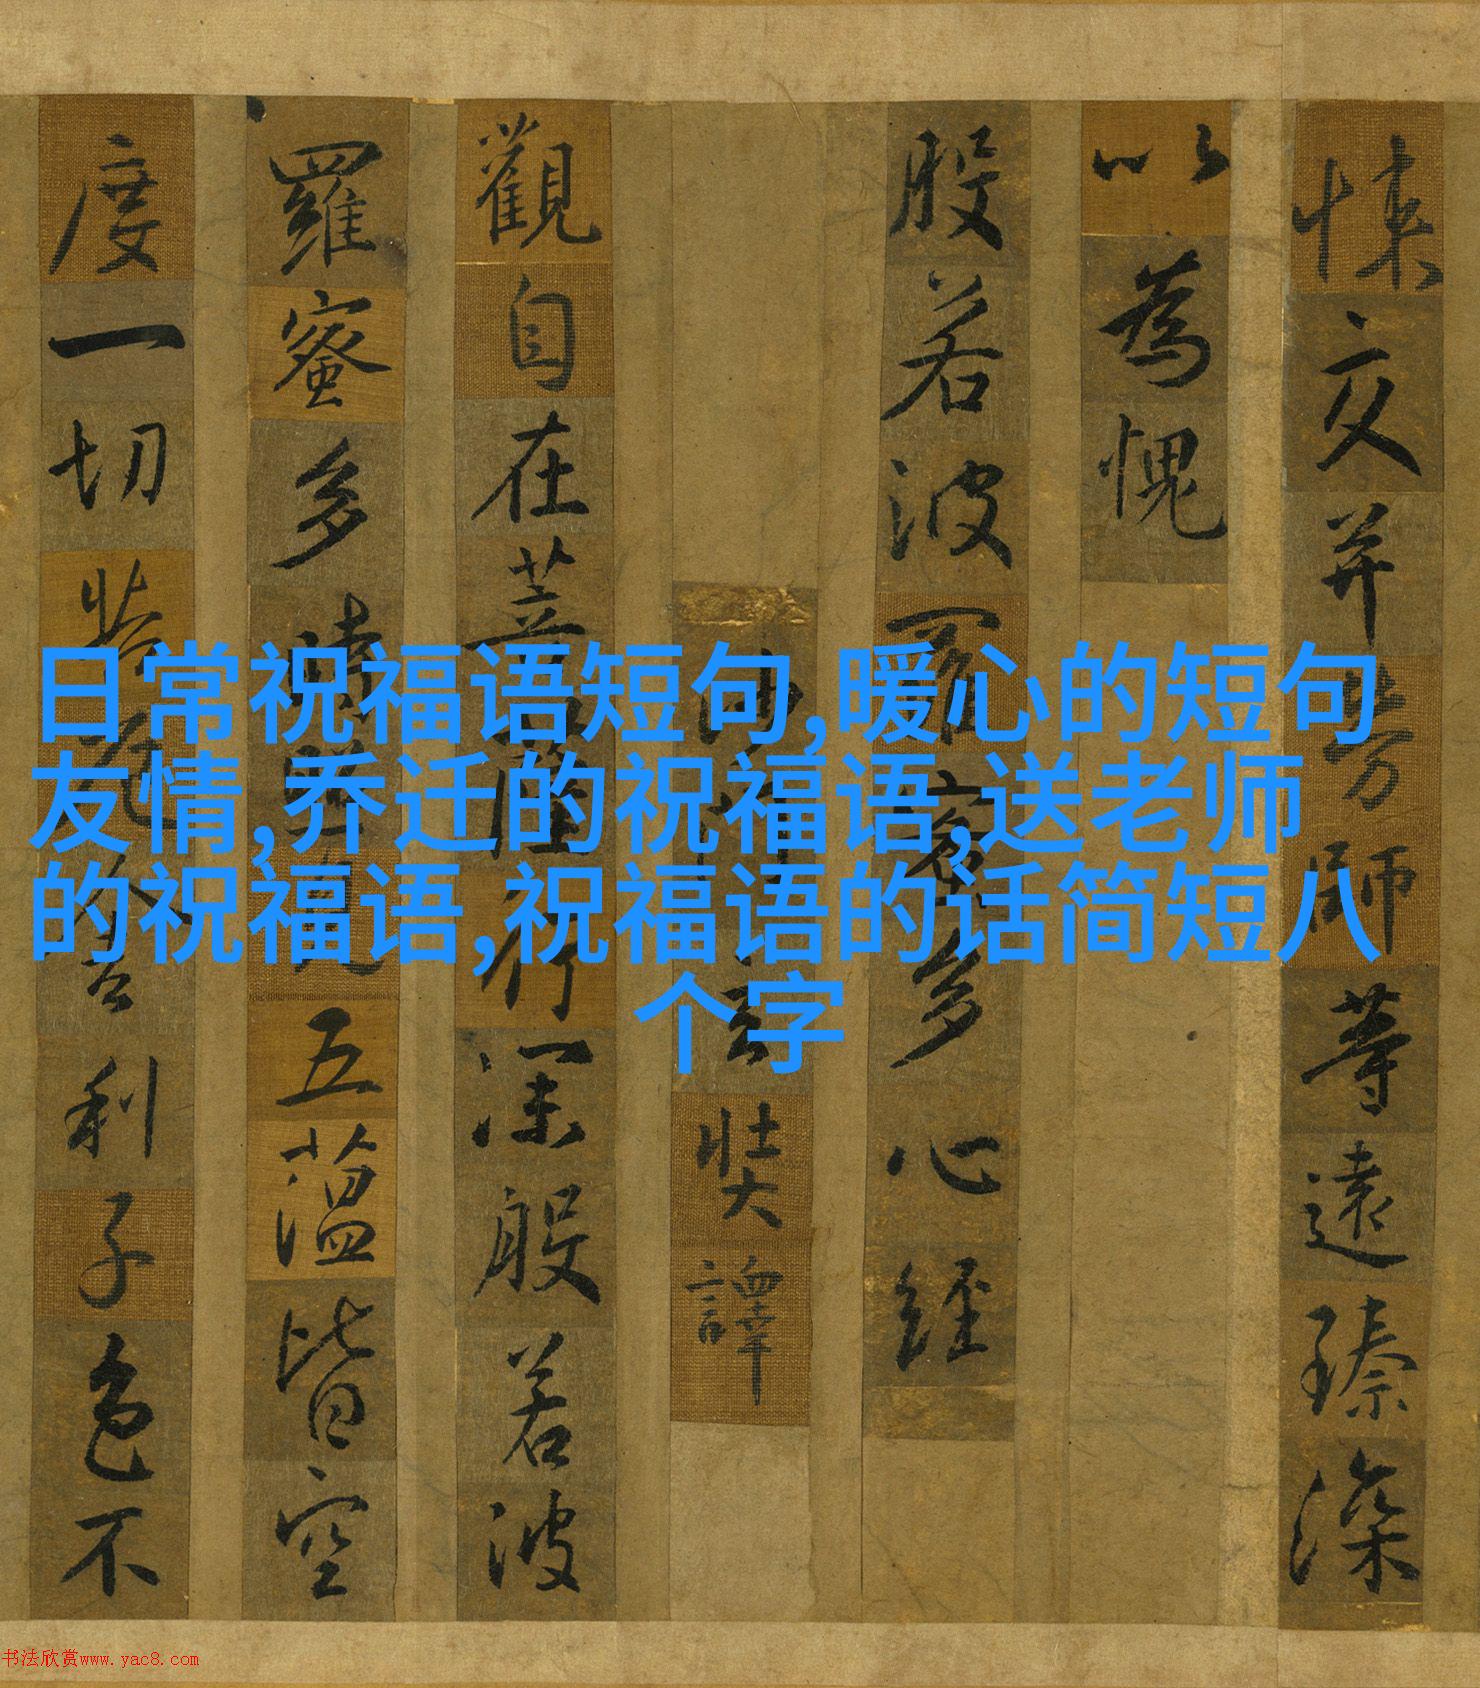 日常祝福语短句,暖心的短句
友情,乔迁的祝福语,送老师
的祝福语,祝福语的话简短八
个字
悚交并勞師等遠臻深
以為愧
般若波羅蜜多心經
沙門玄奘譯
觀自在菩薩行深般若波
羅蜜多時照見五蘊皆空
度一切苦厄舍利子色不
书法欣赏www.yac8.com